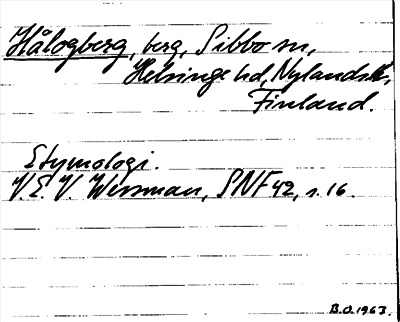 Hålogberg, berg, Sibbo sn,
Helsinge hd, Nylands l.,
Finland.
Etymologi.
V. E. V. Wessman, SNF 42, s. 16.
B.O. 1963.